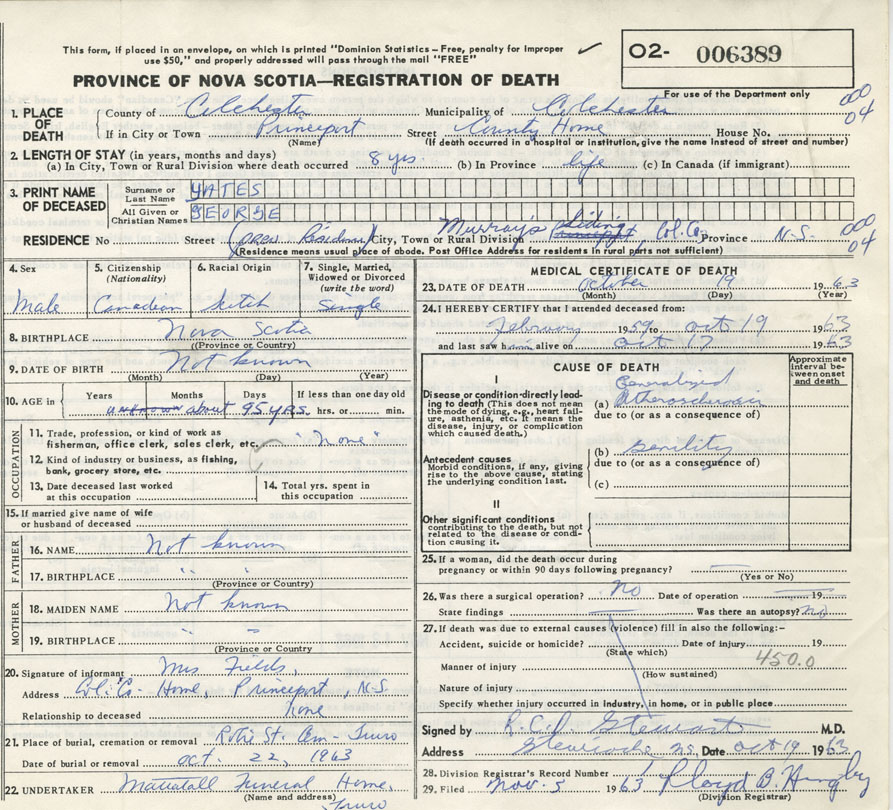 This form, if placed in an envelope, on which is printed "Dominion Statistics – Free, penalty for improper
use $50," and properly addressed will pass through the mail "FREE"
O2- 006389
For use of the Department only
PROVINCE OF NOVA SCOTIA—REGISTRATION OF DEATH
1. PLACE OF DEATH
County of Colchester Municipality of Colchester 000
If in City or Town Princeport Street County Home House No. 04
(Name) (If death occurred in a hospital or institution, give the name instead of street and number)
2. LENGTH OF STAY (in years, months and days)
(a) In City, Town or Rural Division where death occurred 8 yrs. (b) In Province life (c) In Canada (if immigrant)
3. PRINT NAME OF DECEASED
Surname or Last Name YATES
All Given or Christian Names GEORGE
RESIDENCE No Street City, Town or Rural Division Murray's Siding Col. Co. Province N.S. 000
(Residence means usual place of abode. Post Office Address for residents in rural parts not sufficient) 04
4. Sex
Male
5. Citizenship
(Nationality)
Canadian
6. Racial Origin
7. Single, Married,
Widowed or Divorced
(write the word)
Single
8. BIRTHPLACE Nova Scotia
(Province or Country)
9. DATE OF BIRTH Not known
(Month) (Day) (Year)
10. AGE in
Years Months Days If less than one day old
unknown about 95 yrs. hrs. or min.
OCCUPATION
11. Trade, profession, or kind of work as
fisherman, office clerk, sales clerk, etc. "None"
12. Kind of industry or business, as fishing,
bank, grocery store, etc.
13. Date deceased last worked
at this occupation
14. Total yrs. spent in
this occupation
15. If married give name of wife
or husband of deceased
FATHER
16. NAME Not known
17. BIRTHPLACE " "
(Province or Country)
MOTHER
18. MAIDEN NAME Not known
19. BIRTHPLACE " "
(Province or Country
20. Signature of informant Mrs Fields,
Address Col. Co. Home, Princeport, N.S.
Relationship to deceased none
21. Place of burial, cremation or removal St. Cem - Truro
Date of burial or removal Oct. 22, 1963
22. UNDERTAKER Mattatall Funeral Home,
(Name and address) Truro
MEDICAL CERTIFICATE OF DEATH
23. DATE OF DEATH October 19 1963
(Month) (Day) (Year)
24. I HEREBY CERTIFY that I attended deceased from:
February 1959 to Oct 19 1963
and last saw him alive on Oct 17 1963
CAUSE OF DEATH
Approximate
interval be-
tween onset
and death
I
Disease or condition-directly lead-
ing to death (This does not mean
the mode of dying, e.g., heart fail-
ure, asthenia, etc. It means the
disease, injury, or complication
which caused death.)
Generalized
(a) Atherosclerosis
due to (or as a consequence of)
Antecedent causes
Morbid conditions, if any, giving
rise to the above cause, stating
the underlying condition last.
(b) Senility
due to (or as a consequence of)
(c)
II
Other significant conditions
contributing to the death, but not
related to the disease or condi-
tion causing it.
25. If a woman, did the death occur during
pregnancy or within 90 days following pregnancy?
(Yes or No)
26. Was there a surgical operation? No Date of operation 19
State findings Was there an autopsy? No
27. If death was due to external causes (violence) fill in also the following:–
Accident, suicide or homicide? Date of injury 19
(State which)
450.0
Manner of injury
(How sustained)
Nature of injury
Specify whether injury occurred in industry, in home, or in public place
Signed by Stewart M.D.
Address Stewiacke N.S. Date Oct 19 1963
28. Division Registrar's Record Number
29. Filed Nov. 5 1963 Lloyd B.
(Division Registrar)